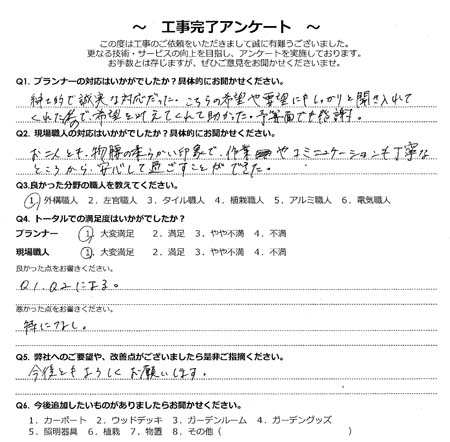 ～ 工事完了アンケート ～
この度は工事のご依頼をいただきまして誠に有難うございました。
更なる技術・サービスの向上を目指し、アンケートを実施しております。
お手数とは存じますが、ぜひご意見をお聞かせくださいませ。
Q1. プランナーの対応はいかがでしたか？具体的にお聞かせください。
紳士的で誠実な対応だった。こちらの希望や要望にもしっかりと聞き入れて
くれたので、希望を叶えてくれて助かった。予算面でも感謝。
Q2. 現場職人の対応はいかがでしたか？具体的にお聞かせください。
お二人とも、物腰の柔らかい印象で、作業やコミュニケーションも丁寧な
ところから、安心して過ごすことができた。
Q3.良かった分野の職人を教えてください。
1．外構職人 2．左官職人 3．タイル職人 4．植栽職人 5．アルミ職人 6．電気職人
Q4. トータルでの満足度はいかがでしたか？
プランナー 1．大変満足 2．満足 3．やや不満 4．不満
現場職人 1．大変満足 2．満足 3．やや不満 4．不満
良かった点をお書きください。
Q1、Q2による。
悪かった点をお書きください。
特になし。
Q5. 弊社へのご要望や、改善点がございましたら是非ご指摘ください。
今後ともよろしくお願いします。
Q6. 今後追加したいものがありましたらお聞かせください。
1．カーポート 2．ウッドデッキ 3．ガーデンルーム 4．ガーデングッズ
5．照明器具 6．植栽 7．物置 8．その他（ ）